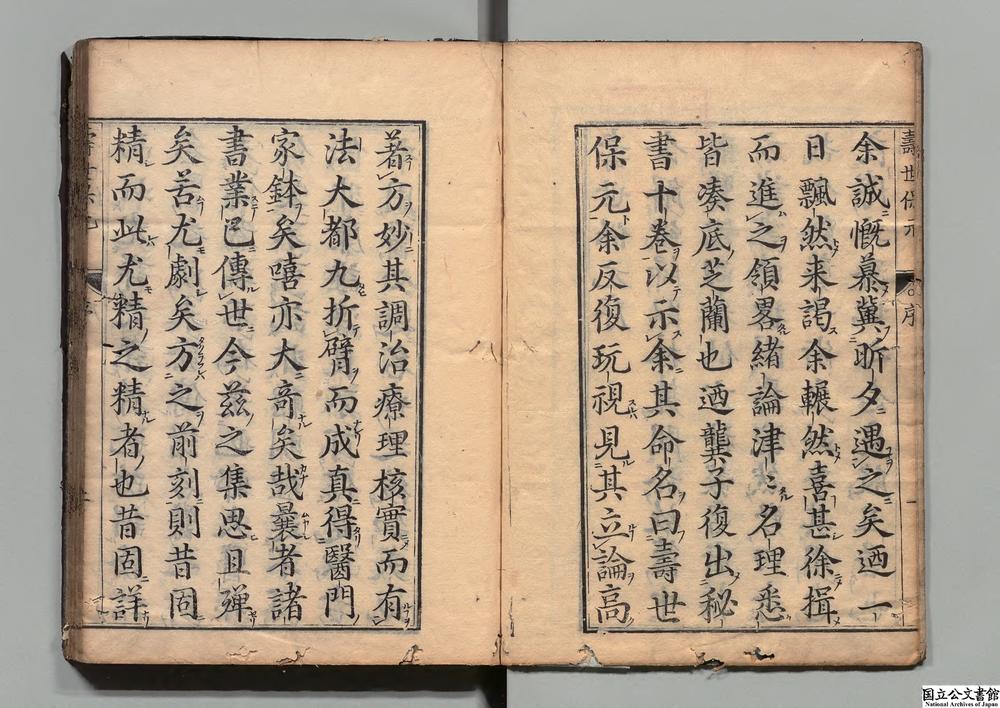 壽世保元
序
余誠慨慕冀昕夕遇之矣迺一
日飄然来謁余輾然喜甚徐揖
而進之領畧緒論津〻名理悉
皆凑底芝蘭也迺龔子復出秘
書十卷以示余其命名曰壽世
保元余反復玩視見其立論高
著方妙其調治療理核實而有
法大都九折臂而成真得醫門
家鉢矣嘻亦大奇矣哉曩者諸
書業已傳世今兹之集思且殫
矣苦尤劇矣方之前刻則昔固
精而此尤精之精者也昔固詳
国立公文書館
National Archives of Japan